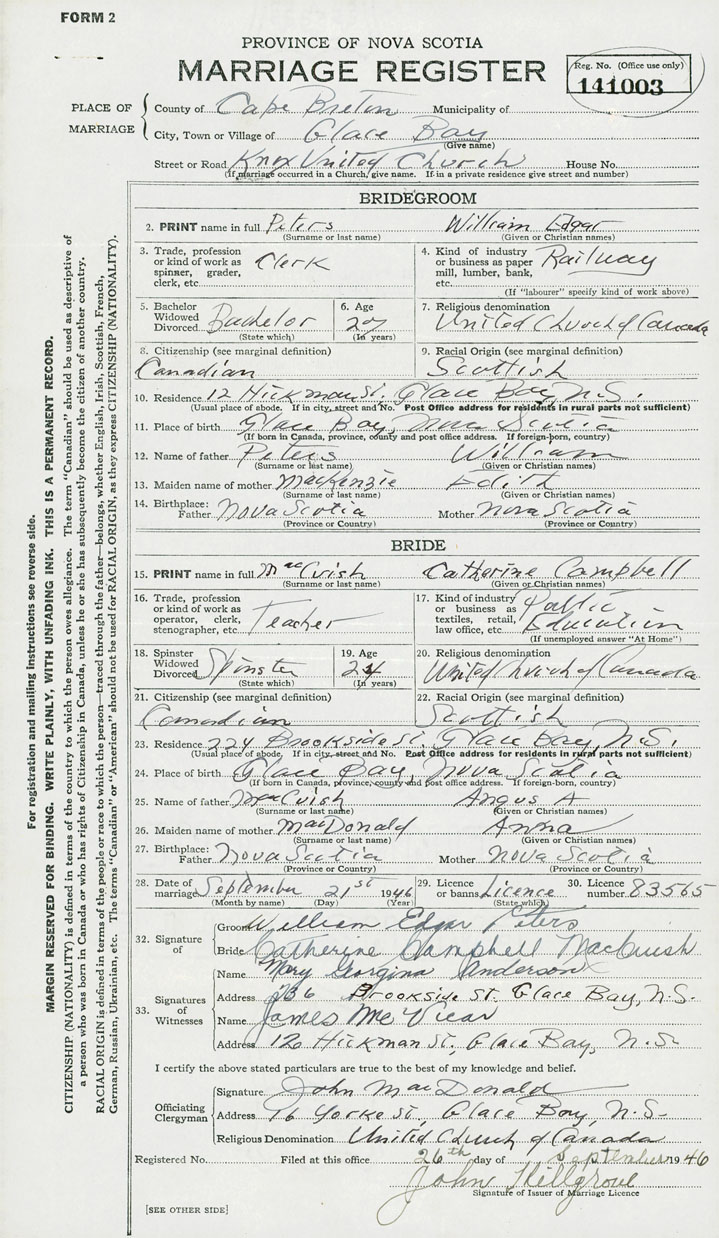 FORM 2
PROVINCE OF NOVA SCOTIA
MARRIAGE REGISTER
Reg. No. (Office use only)
141003
PLACE OF MARRIAGE
County of Cape Breton Municipality of
City, Town or Village of Glace Bay
(Give name)
Street or Road Knox United Church House No.
(If marriage occurred in a Church, give name. If in a private residence give street and number)
BRIDEGROOM
2. PRINT name in full Peters William Edgar
(Surname or last name) (Given or Christian names)
3. Trade, profession or kind of work as spinner, grader, clerk, etc. Clerk
4. Kind of industry or business as paper mill, lumber, bank, etc. Railway
(If "labourer" specify kind of work above)
5. Bachelor Widowed Divorced Bachelor
(State which)
6. Age 27
(In years)
7. Religious denomination
United Church of Canada
8. Citizenship (see marginal definition)
Canadian
9. Racial Origin (see marginal definition)
Scottish
10. Residence 12 Hickman St. Glace Bay, N.S.
(Usual place of abode. If in city, street and No. Post Office address for residents in rural parts not sufficient)
11. Place of birth Glace Bay, Nova Scotia
(If born in Canada, province, county and post office address. If foreign-born, country)
12. Name of father Peters William
(Surname or last name) (Given or Christian names)
13. Maiden name of mother MacKenzie Edith
(Surname or last name) (Given or Christian names)
14. Birthplace: Father Nova Scotia Mother Nova Scotia
(Province or Country) (Province or Country)
BRIDE
15. PRINT name in full MacCuish Catherine Campbell
(Surname or last name) (Given or Christian names)
16. Trade, profession or kind of work as operator, clerk, stenographer, etc. Teacher
17. Kind of industry or business as textiles, retail, law office, etc. Public Education
(If unemployed answer "At Home")
18. Spinster Widowed Divorced Spinster
(State which)
19. Age 24
(In years)
20. Religious denomination
United Church of Canada
21. Citizenship (see marginal definition)
Canadian
22. Racial Origin (see marginal definition)
Scottish
23. Residence 224 Brookside St. Glace Bay, N.S.
(Usual place of abode. If in city, street and No. Post Office address for residents in rural parts not sufficient)
24. Place of birth Glace Bay, Nova Scotia
(If born in Canada, province, county and post office address. If foreign-born, country)
25. Name of father MacCuish Angus A
(Surname or last name) (Given or Christian names)
26. Maiden name of mother MacDonald Anna
(Surname or last name) (Given or Christian names)
27. Birthplace: Father Nova Scotia Mother Nova Scotia
(Province or Country) (Province or Country)
28. Date of marriage September 21st 1946
(Month by name) (Day) (Year)
29. Licence or banns Licence
(State which)
30. Licence number 83565
32. Signature of
Groom William Edgar Peters
Bride Catherine Campbell MacCuish
33. Signatures of Witnesses
Name Mary Georgina Anderson
Address 236 Brookside St. Glace Bay, N.S.
Name James McVicar
Address 126 Hickman St., Glace Bay, N.S.
I certify the above stated particulars are true to the best of my knowledge and belief.
Officiating Clergyman
Signature John MacDonald
Address 76 Yorke St., Glace Bay, N.S.
Religious Denomination United Church of Canada
Registered No. Filed at this office 26th day of September 1946
John Hillgrove
Signature of Issuer of Marriage Licence
[SEE OTHER SIDE]
For registration and mailing instructions see reverse side.
MARGIN RESERVED FOR BINDING. WRITE PLAINLY, WITH UNFADING INK. THIS IS A PERMANENT RECORD.
CITIZENSHIP (NATIONALITY) is defined in terms of the country to which the person owes allegiance. The term "Canadian" should be used as descriptive of
a person who was born in Canada or who has rights of Citizenship in Canada, unless he or she has subsequently become the citizen of another country.
RACIAL ORIGIN is defined in terms of the people or race to which the person—traced through the father—belongs, whether English, Irish, Scottish, French,
German, Russian, Ukrainian, etc. The terms "Canadian" or "American" should not be used for RACIAL ORIGIN, as they express CITIZENSHIP (NATIONALITY).